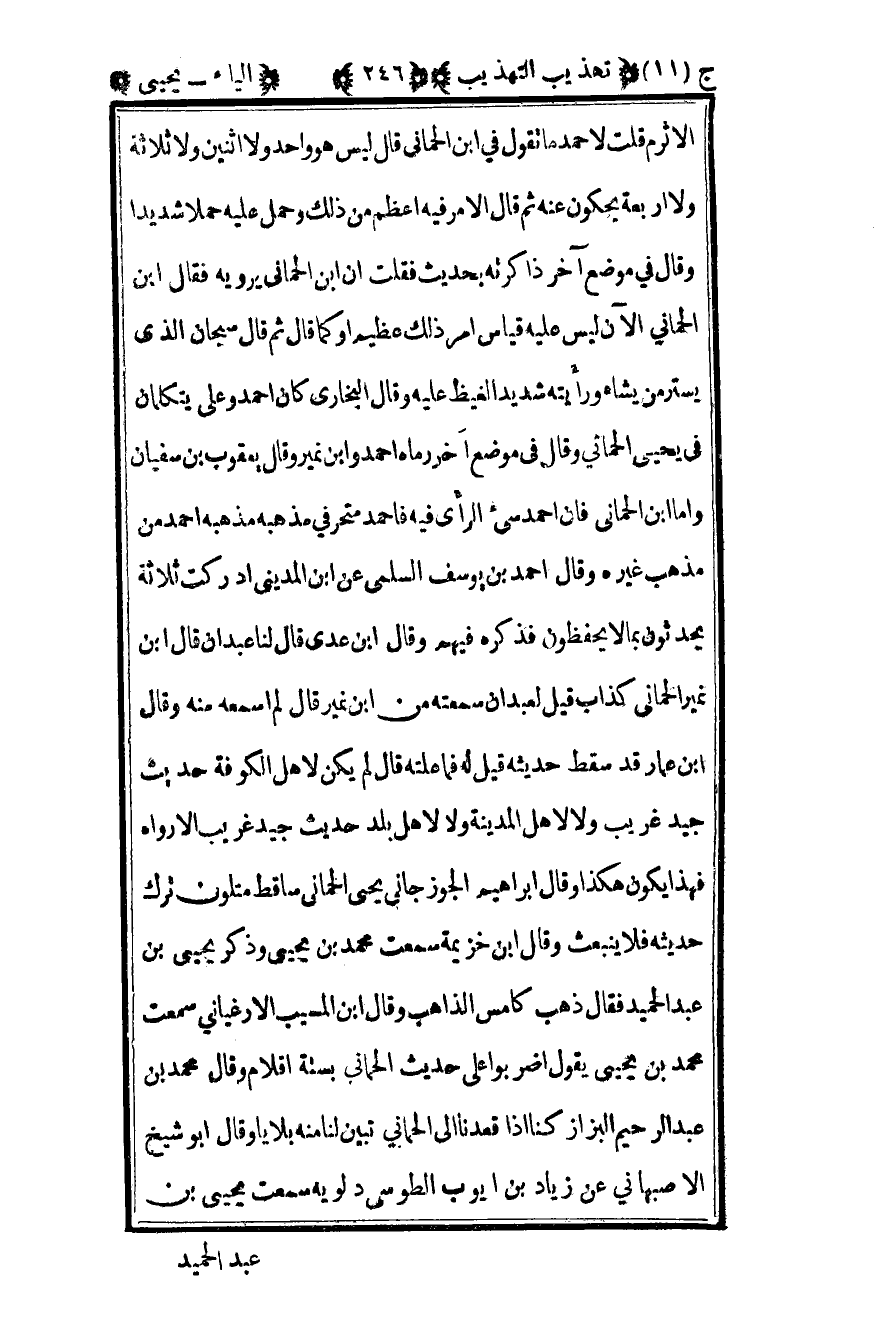 ج (١١) تهذيب التهذيب ٢٤٦ الياء ـ يحيى
الاثرم قلت لاحمد ما تقول في ابن الحماني قال ليس هو واحد ولا اثنين ولا ثلاثة
ولا اربعة يحكون عنه ثم قال الامر فيه اعظم من ذلك وحمل عليه حملا شديدا
وقال في موضع آخر ذاكرته بحديث فقلت ان ابن الحمانى يرويه فقال ابن
الحماني الآن ليس عليه قياس امر ذلك عظيم اوكما قال ثم قال سبحان الذى
يستر من يشاء ورأيته شديد الغيظ عليه وقال البخارى كان احمد وعلى يتكلمان
فى يحيى الحماني وقال فى موضع آخر رماه احمد وابن نمير وقال يعقوب بن سفيان
واما ابن الحمانى فان احمد سئ الرأى فيه فاحمد متحر في مذهبه مذهبه احمد من
مذهب غيره وقال احمد بن يوسف السلمى عن ابن المدينى ادركت ثلاثة
يحدثون بما لا يحفظون فذكره فيهم وقال ابن عدى قال لنا عبدان قال ابن
نمير الحمانى كذاب قيل لعبدان سمعته من ابن نمير قال لم اسمعه منه وقال
ابن عمار قد سقط حديثه قيل له فما علته قال لم يكن لاهل الكوفة حديث
جيد غريب ولا لاهل المدينة ولا لاهل بلد حديث جيد غريب الا رواه
فهذا يكون هكذا وقال ابراهيم الجوزجاني يحيى الحمانى ساقط متلون ترك
حديثه فلا ينبعث وقال ابن خزيمة سمعت محمد بن يحيى وذكر يحيى بن
عبد الحميد فقال ذهب كامس الذاهب وقال ابن المسيب الارغياني سمعت
محمد بن يحيى يقول اضربوا على حديث الحماني بستة اقلام وقال محمد بن
عبد الرحيم البزاز كنا اذا قعدنا الى الحماني تبين لنا منه بلايا وقال ابو شيخ
الاصبهاني عن زياد بن ايوب الطوسى دلويه سمعت يحيى بن
عبد الحميد